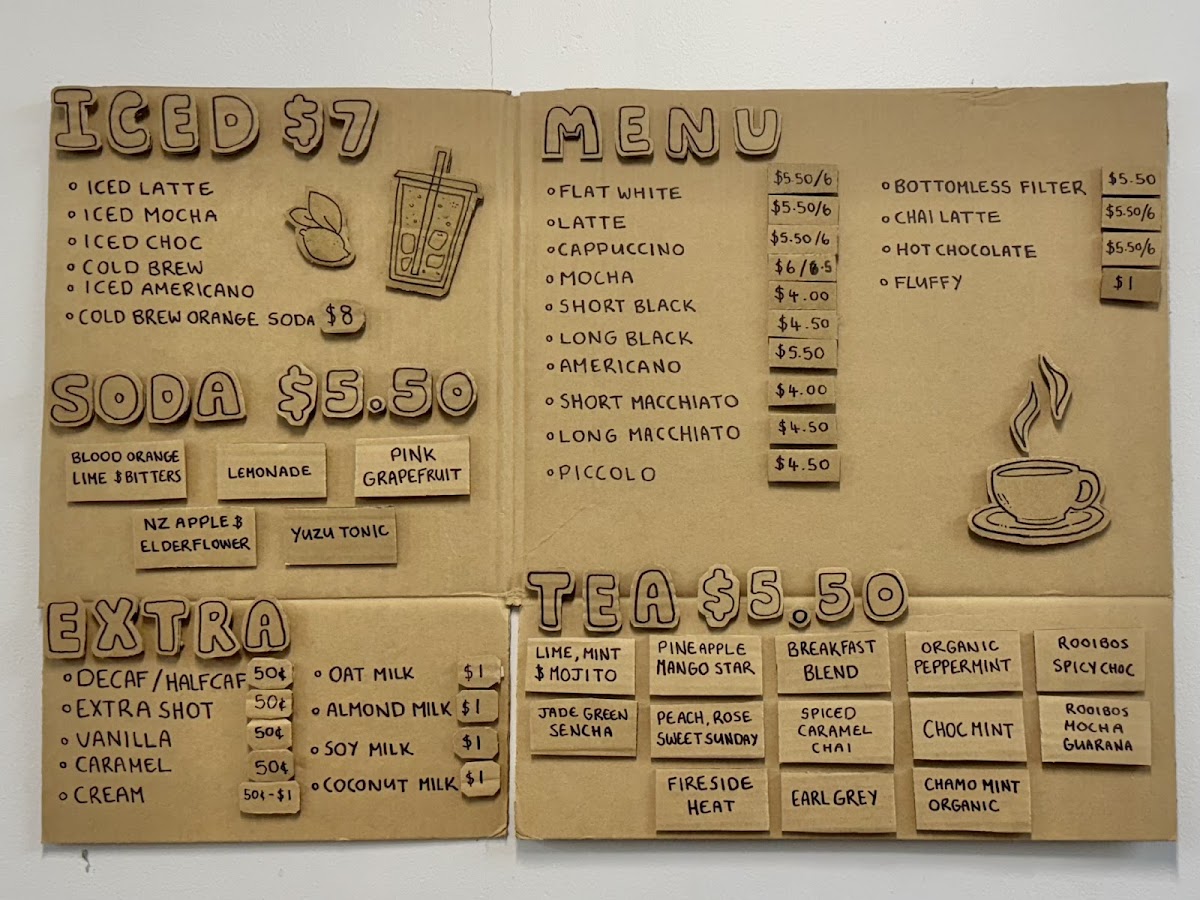 ICED $7
∘ ICED LATTE
∘ ICED MOCHA
∘ ICED CHOC
∘ COLD BREW
∘ ICED AMERICANO
∘ COLD BREW ORANGE SODA $8
SODA $5.50
BLOOD ORANGE
LIME $ BITTERS
LEMONADE
PINK
GRAPEFRUIT
NZ APPLE $
ELDERFLOWER
YUZU TONIC
EXTRA
∘ DECAF/HALFCAF 50¢
∘ EXTRA SHOT 50¢
∘ VANILLA 50¢
∘ CARAMEL 50¢
∘ CREAM 50¢-$1
∘ OAT MILK $1
∘ ALMOND MILK $1
∘ SOY MILK $1
∘ COCONUT MILK $1
MENU
∘ FLAT WHITE $5.50/6
∘ LATTE $5.50/6
∘ CAPPUCCINO $5.50/6
∘ MOCHA $6/6.5
∘ SHORT BLACK $4.00
∘ LONG BLACK $4.50
∘ AMERICANO $5.50
∘ SHORT MACCHIATO $4.00
∘ LONG MACCHIATO $4.50
∘ PICCOLO $4.50
∘ BOTTOMLESS FILTER $5.50
∘ CHAI LATTE $5.50/6
∘ HOT CHOCOLATE $5.50/6
∘ FLUFFY $1
TEA $5.50
LIME, MINT
$ MOJITO
PINEAPPLE
MANGO STAR
BREAKFAST
BLEND
ORGANIC
PEPPERMINT
ROOIBOS
SPICY CHOC
JADE GREEN
SENCHA
PEACH, ROSE
SWEET SUNDAY
SPICED
CARAMEL
CHAI
CHOC MINT
ROOIBOS
MOCHA
GUARANA
FIRESIDE
HEAT
EARL GREY
CHAMO MINT
ORGANIC